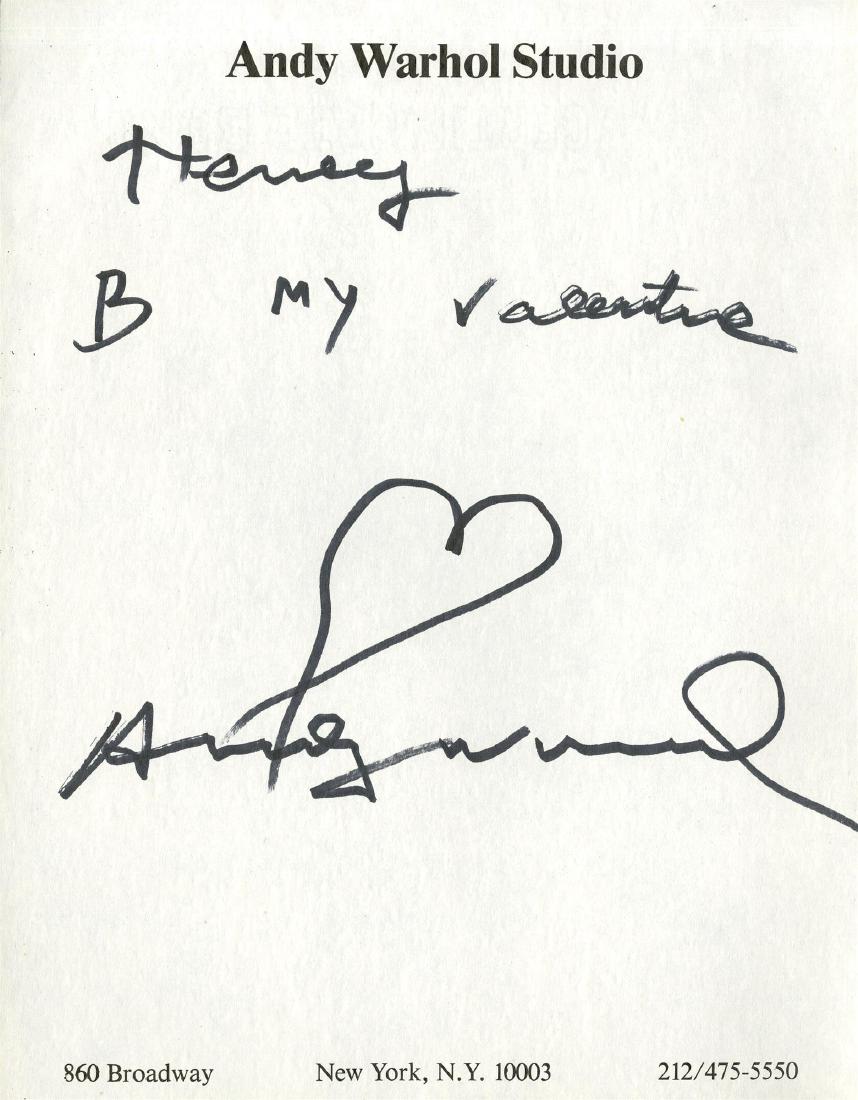 Andy Warhol Studio
Henry
B MY Valentine
Andy Warhol
860 Broadway New York, N.Y. 10003 212/475-5550